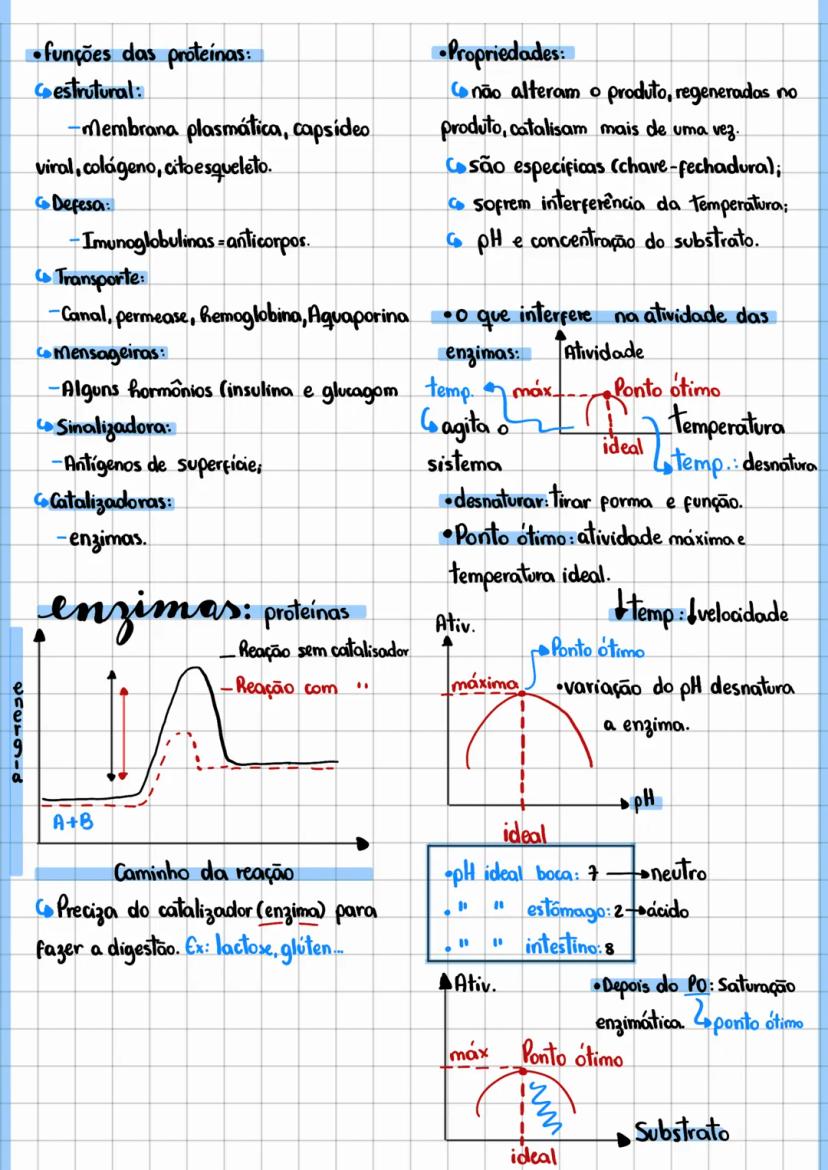 •funções das proteínas:
↳estrutural:
-Membrana plasmática, capsídeo
viral, colágeno, citoesqueleto.
↳Defesa:
-Imunoglobulinas = anticorpos.
↳Transporte:
-Canal, permease, hemoglobina, Aquaporina
↳Mensageiras:
-Alguns hormônios (insulina e glucagom
↳Sinalizadora:
-Antígenos de superfície;
↳Catalizadoras:
-enzimas.
enzimas: proteínas
energia
_ Reação sem catalisador
- Reação com "
A+B
Caminho da reação
↳Preciza do catalizador (enzima) para
fazer a digestão. Ex: lactose, glúten...
•Propriedades:
↳não alteram o produto, regeneradas no
produto, catalisam mais de uma vez.
↳são específicas (chave-fechadura);
↳sofrem interferência da temperatura;
↳pH e concentração do substrato.
•O que interfere na atividade das
enzimas:
Atividade
temp.
máx
Ponto ótimo
↳agita o
sistema
Temperatura
ideal
temp.: desnatura
•desnaturar: tirar forma e função.
•Ponto ótimo: atividade máxima e
temperatura ideal.
↓temp: ↓velocidade
Ativ.
Ponto ótimo
máxima
•variação do pH desnatura
a enzima.
pH
ideal
•pH ideal boca: 7 → neutro
• " " estômago: 2 → ácido
• " " intestino: 8
Ativ.
•Depois do PO: Saturação
enzimática. ↳ponto ótimo
máx
Ponto ótimo
Substrato
ideal